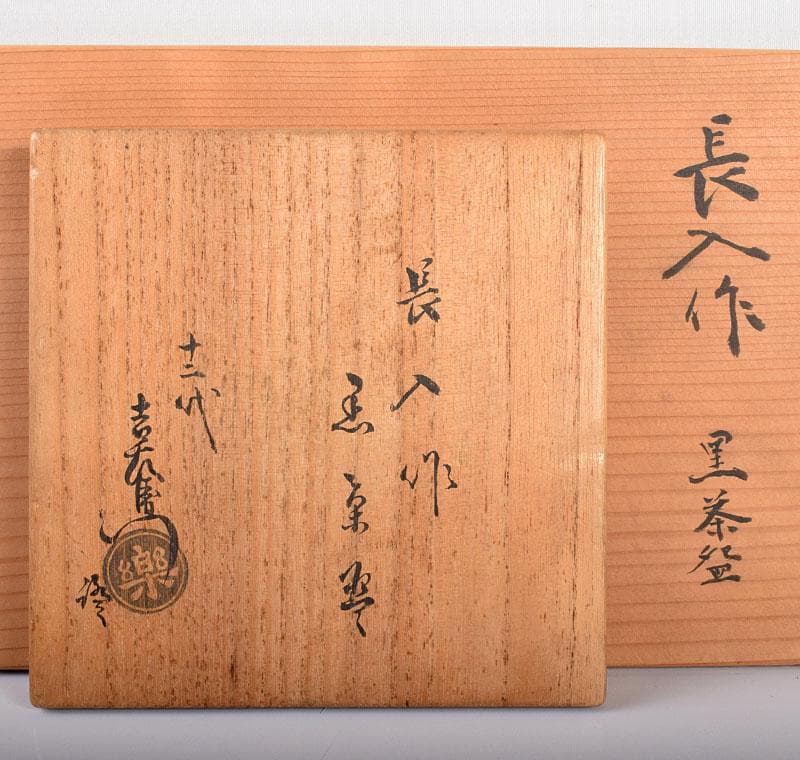 長入作
黒茶盌
長入作
黒茶碗
十二代
吉左衛門
樂
證